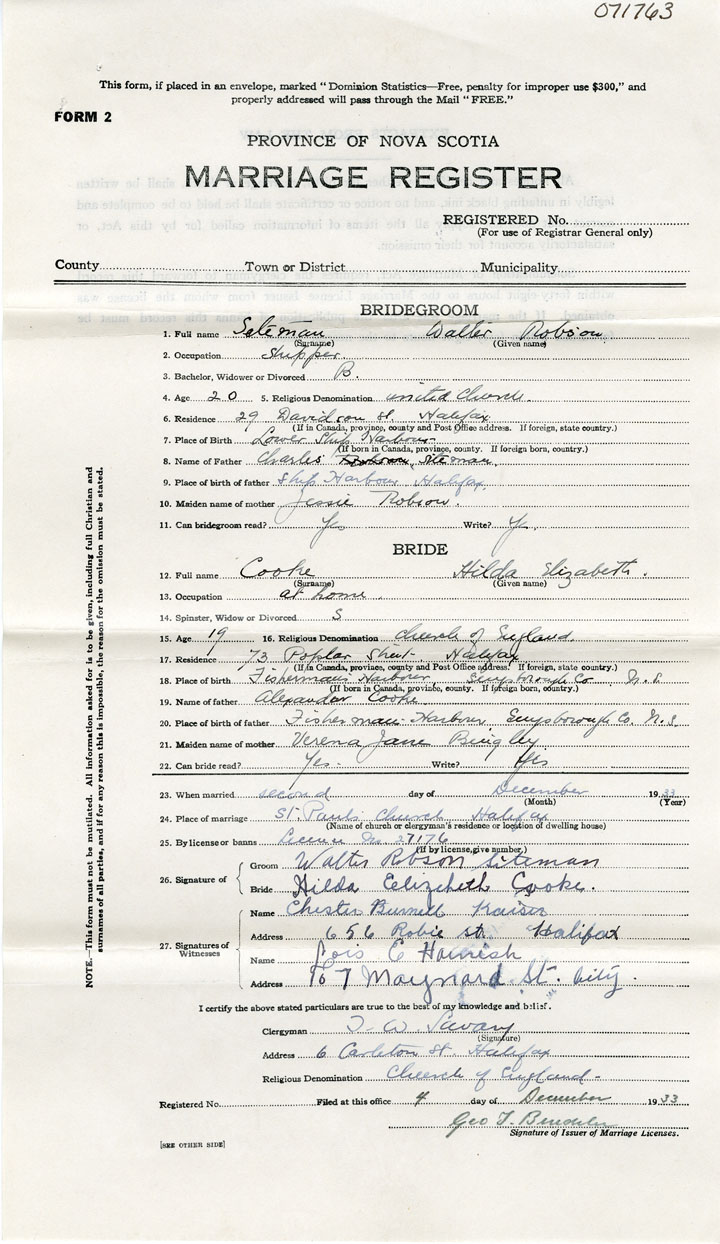 071763
This form, if placed in an envelope, marked "Dominion Statistics—Free, penalty for improper use $300," and
properly addressed will pass through the Mail "FREE."
FORM 2
PROVINCE OF NOVA SCOTIA
MARRIAGE REGISTER
REGISTERED No.
(For use of Registrar General only)
County Town or District Municipality
BRIDEGROOM
1. Full name Siteman Walter Robson
(Surname) (Given name)
2. Occupation Shipper
3. Bachelor, Widower or Divorced B.
4. Age 20 5. Religious Denomination United Church.
6. Residence 29 Davidson St. Halifax
(If in Canada, province, county and Post Office address. If foreign, state country.)
7. Place of Birth Lower Ship Harbour
(If born in Canada, province, county. If foreign born, country.)
8. Name of Father Charles Siteman
9. Place of birth of father Ship Harbour Halifax.
10. Maiden name of mother Jessie Robson.
11. Can bridegroom read? Yes Write? Yes.
BRIDE
12. Full name Cooke Hilda Elizabeth.
(Surname) (Given name)
13. Occupation at home.
14. Spinster, Widow or Divorced S
15. Age 19 16. Religious Denomination Church of England.
17. Residence 73 Poplar Street Halifax
(If in Canada, province, county and Post Office address. If foreign, state country.)
18. Place of birth Fisherman's Harbour, Guysborough Co. N.S.
(If born in Canada, province, county. If foreign born, country.)
19. Name of father Alexander Cooke
20. Place of birth of father Fisherman Harbour Guysborough Co. N.S.
21. Maiden name of mother Verena Jane Bingley
22. Can bride read? Yes- Write? Yes
23. When married second day of December 1933
(Month) (Year)
24. Place of marriage St. Pauls Church Halifax
(Name of church or clergyman's residence or location of dwelling house)
25. By license or banns Licence No 27176
(If by license, give number.)
26. Signature of
Groom Walter Robson Siteman
Bride Hilda Elizabeth Cooke.
27. Signatures of Witnesses
Name Chester Burnell Kaiser
Address 656 Robie st. Halifax
Name Lois E Harnish
Address 107 Maynard St. City.
I certify the above stated particulars are true to the best of my knowledge and belief.
Clergyman T. W. Savary
(Signature)
Address 6 Carleton St. Halifax
Religious Denomination Church of England-
Registered No. Filed at this office 4 day of December 1933
Geo T
Signature of Issuer of Marriage Licenses.
[SEE OTHER SIDE]
NOTE.—This form must not be mutilated. All information asked for is to be given, including full Christian and
surnames of all parties, and if for any reason this is impossible, the reason for the omission must be stated.